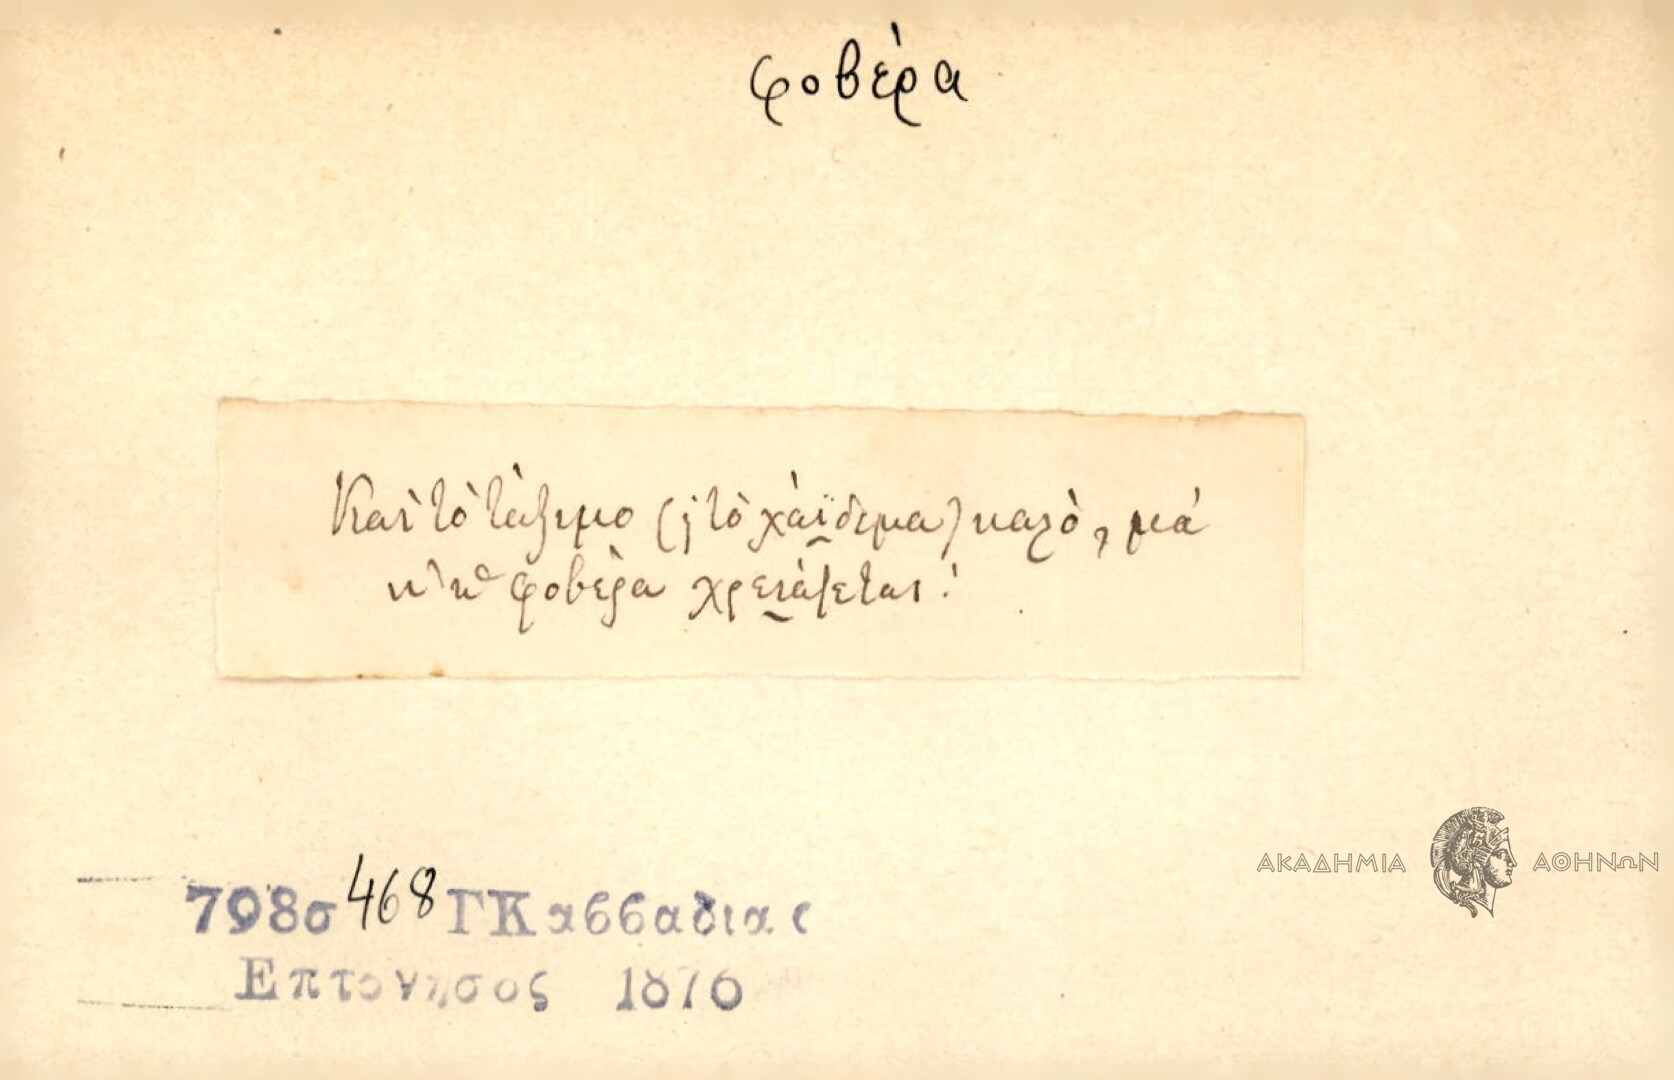 φοβέρα
Καὶ τὸ τάξιμο (ἢ τὸ χάϊδεμα) καλὸ, μὰ
κ' ἡ φοβέρα χρειάζεται!
798σ 468 ΓΚαββαδιας
Επτονησος 1876
ΑΚΑΔΗΜΙΑ ΑΘΗΝΩΝ